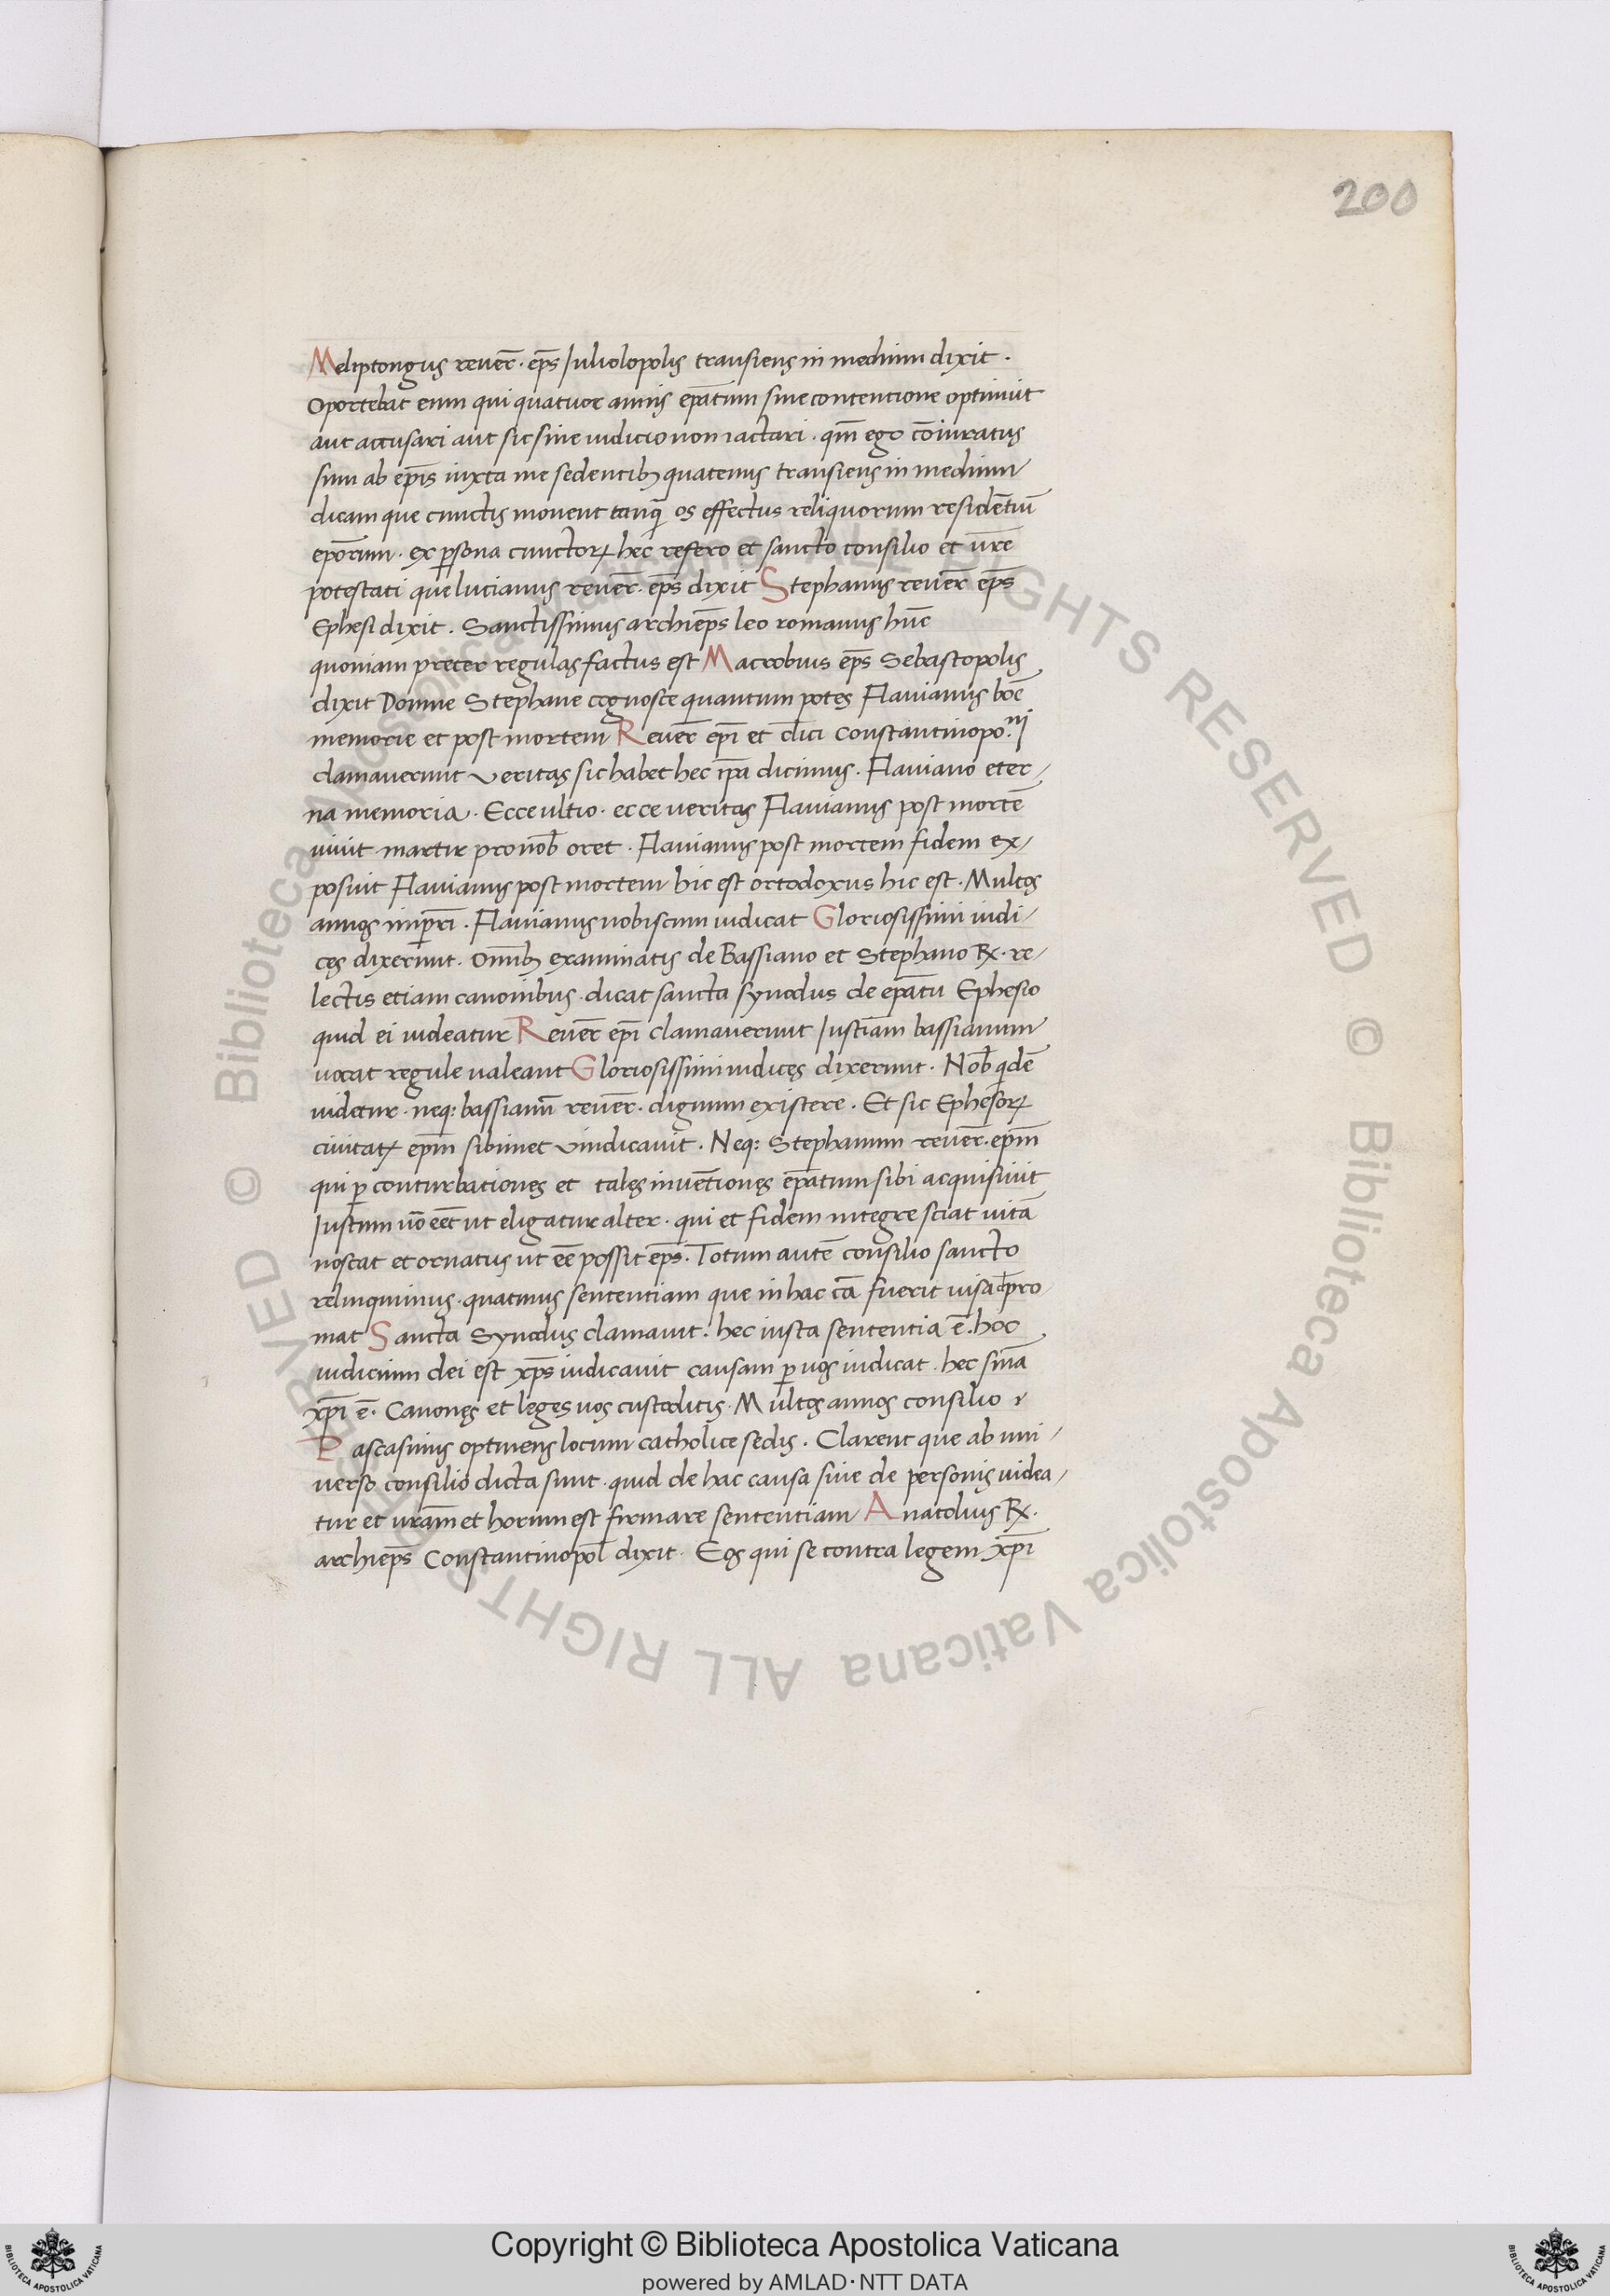 200
Meliptongus reuer̄. ep̄s Iuliolopolis transiens in medium dixit.
Oportebat eum qui quatuor annis ep̄atum sine contentione optinuit
aut accusari aut sic sine iudicio non iactari. qm̄ ego cōiuratus
sum ab ep̄is iuxta me sedentibꝫ quatenus transiens in medium
dicam que cunctis mouent tanq̄ os effectus reliquorum residētiū
eporum. ex ꝑsona cunctoꝝ hec refero et sancto consilio et ur̄e
potestati que lucianus reuer̄. ep̄s dixit Stephanus reuer̄ ep̄s
Ephesi dixit. Sanctissimus archiep̄s leo romanus hūc
quoniam preter regulas factus est Macrobius ep̄s Sebastopolis
dixit Domne Stephane cognosce quantum potes Flauianus boē
memorie et post mortem Reuer̄ ep̄i et cl̄ici Constantinopo.ni
clamauerunt Veritas sic habet hec ip̄a dicimus. Flauiano eter/
na memoria. Ecce ultio. ecce ueritas Flauianus post mortē
uiuit martir pro nob̄ oret. Flauianus post mortem fidem ex/
posuit Flauianus post mortem hic est ortodoxus hic est. Multos
annos imꝑri. Flauianus nobiscum iudicat Gloriosissimi iudi/
ces dixerunt. Omībꝫ examinatis de Bassiano et Stephano Rx. re/
lectis etiam canonibus. dicat sancta synodus de ep̄atu Ephesio
quid ei uideatur Reuer̄ ep̄i clamauerunt Iustiam bassianum
uocat regule ualeant Gloriosissimi iudices dixerunt. Nob̄ qdē
uidetur. neq: bassianū reuer̄. dignum existere. Et sic Ephesoꝝ
ciuitatꝝ ep̄m sibimet Vindicauit. Neq: Stephanum reuer̄. ep̄m
qui ꝑ conturbationes et tales inuētiones ep̄atum sibi acquisiuit
Iustum uō eēt ut eligatur alter. qui et fidem integre sciat uitā
noscat et ornatus ut eē possit ep̄s. Totum autē consilio sancto
relinquimus. quatinus sententiam que in hac cā fuerit uisa pro
mat Sancta Synodus clamauit. hec iusta sententia ē. hoc
iudicium dei est xp̄s iudicauit causam ꝑ uos iudicat. hec sn̄ia
xp̄i ē. Canones et leges uos custoditis. Multos annos consilio
Pascasinus optinens locum catholice sedis. Clarent que ab uni/
uerso consilio dicta sunt. quid de hac causa siue de personis uidea/
tur et ur̄am et horum est firmare sententiam Anatolius Rx.
archiep̄s Constantinopol̄ dixit. Eos qui se contra legem xp̄i
© Biblioteca Apostolica Vaticana ALL RIGHTS RESERVED © Biblioteca Apostolica Vaticana ALL RIGHTS RESERVED
Copyright © Biblioteca Apostolica Vaticana
powered by AMLAD·NTT DATA
BIBLIOTECA APOSTOLICA VATICANA
BIBLIOTECA APOSTOLICA VATICANA